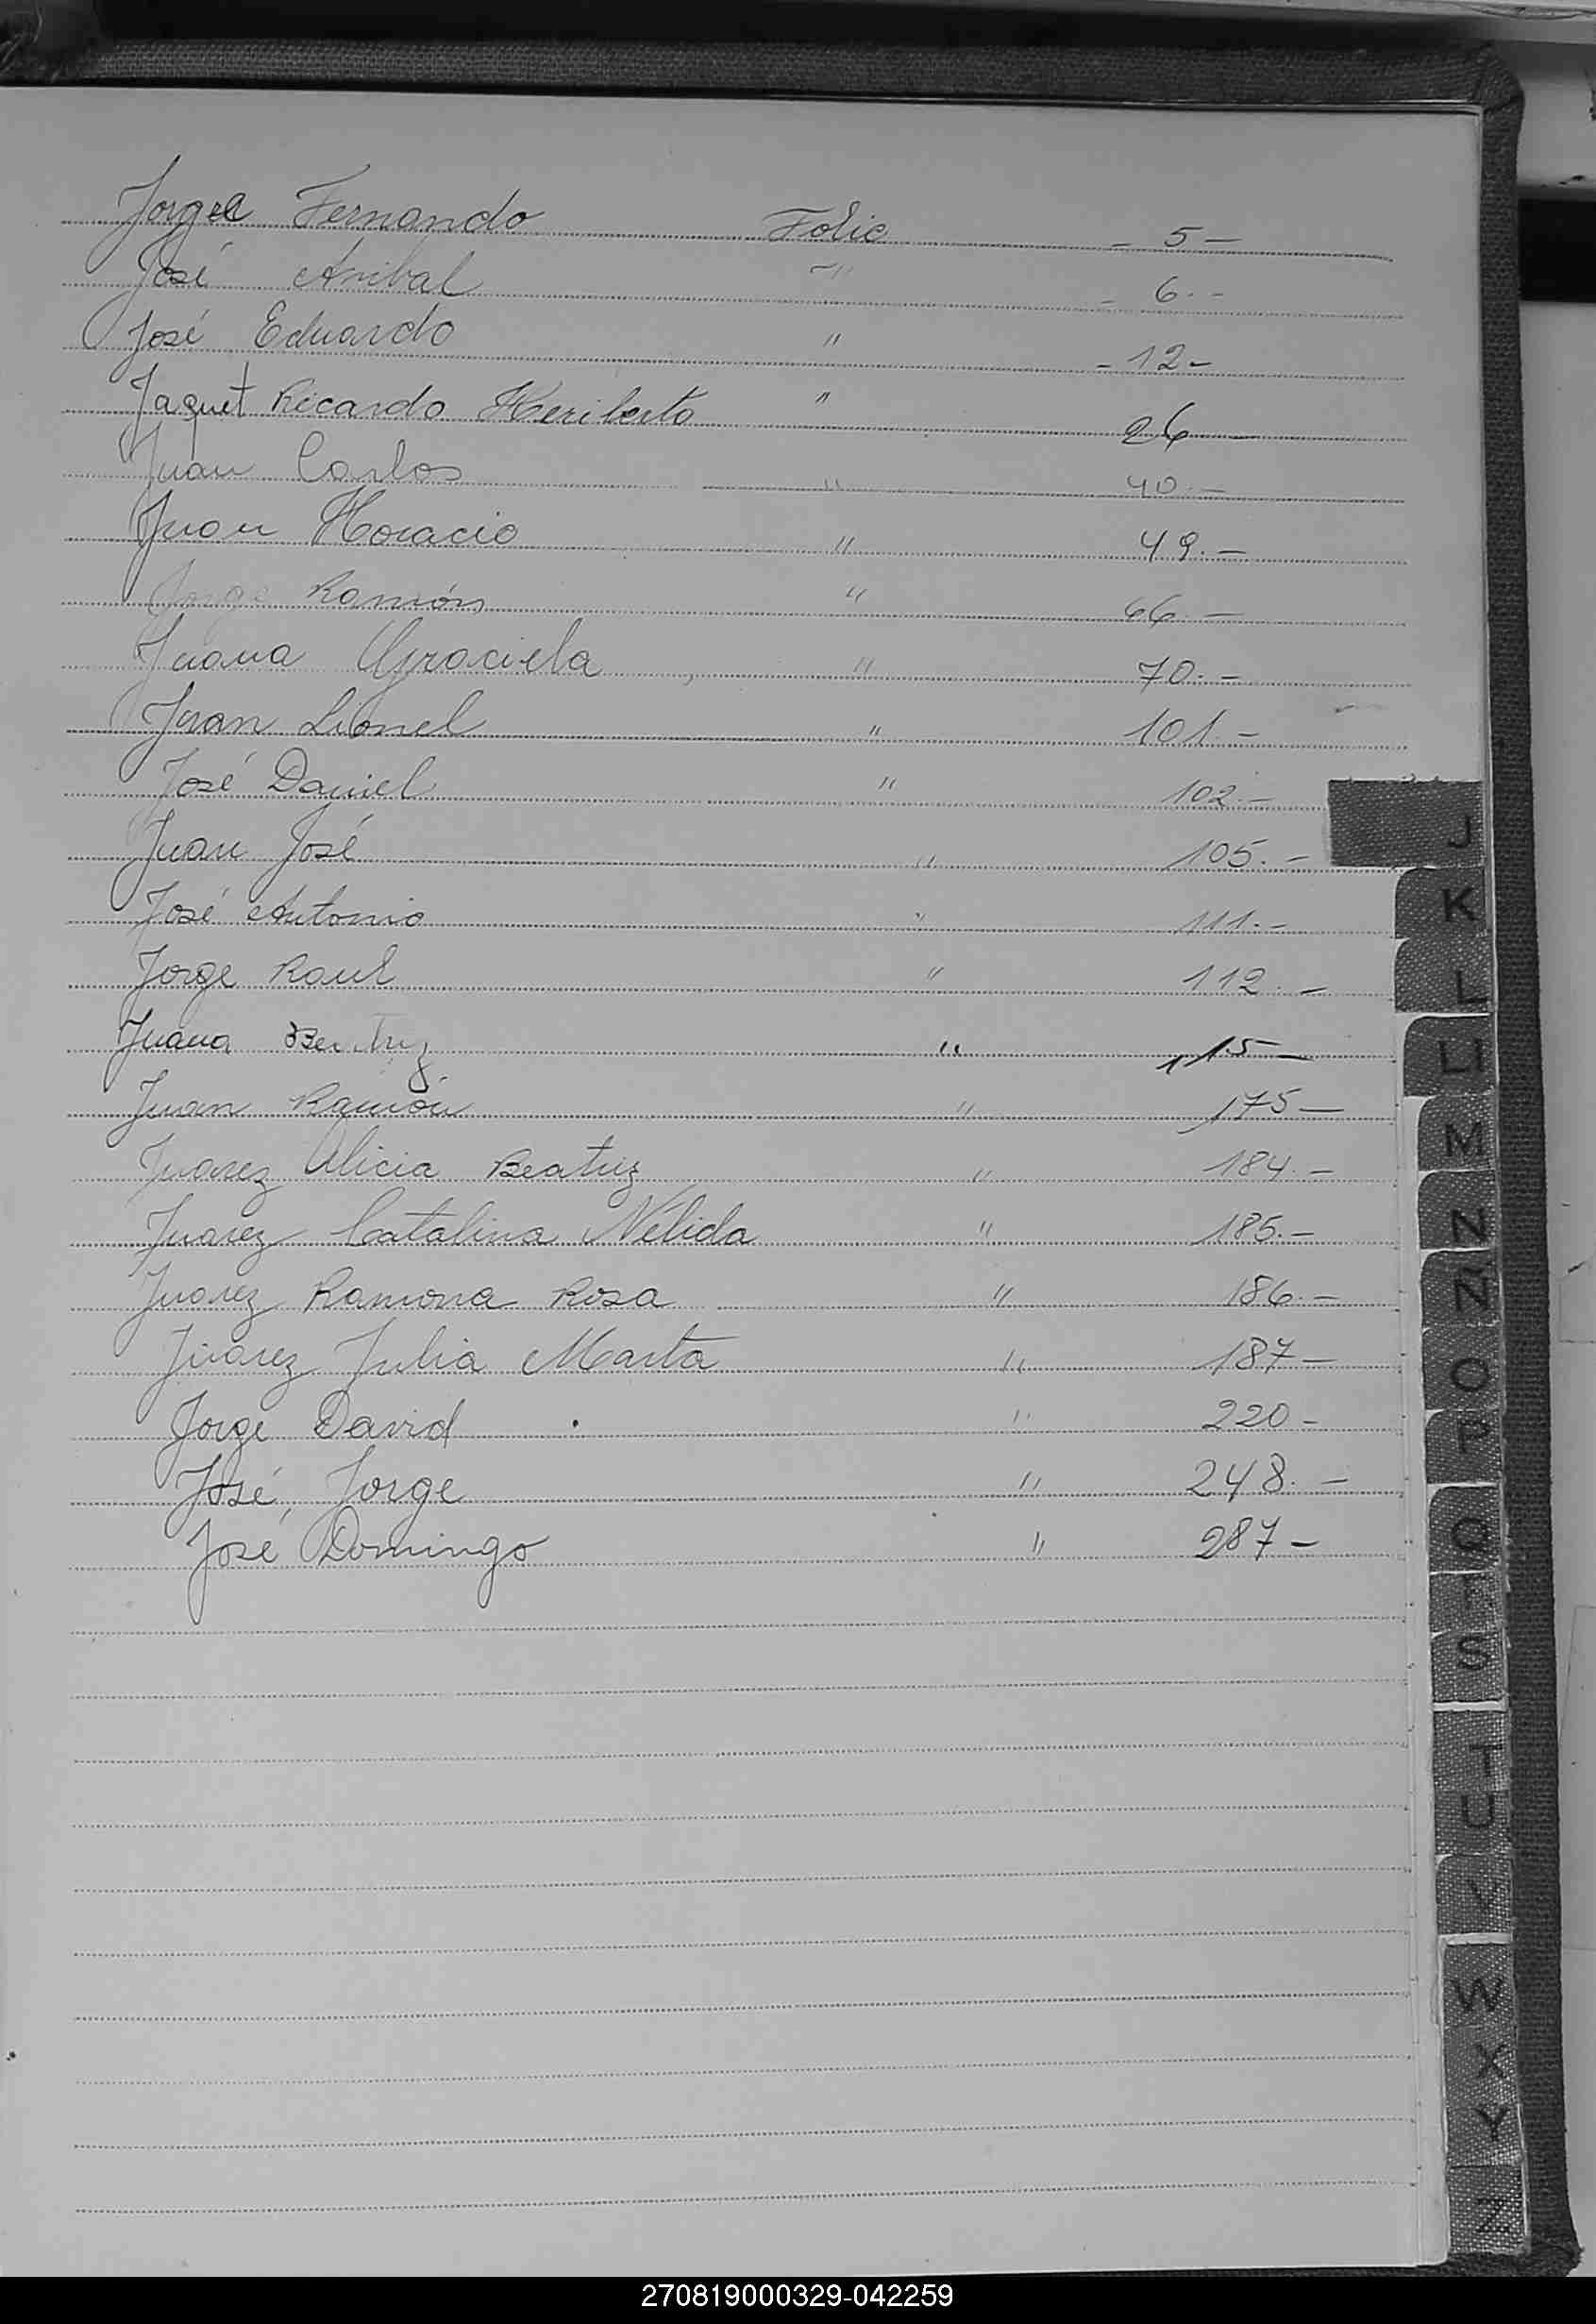 Jorge Fernando Folio - 5 -
José Anibal -"- - 6. -
José Eduardo " - 12 -
Jaquet Ricardo Heriberto " 26 -
Juan Carlos " 40. -
Juan Horacio " 49. -
Jorge Ramón " 66. -
Juana Graciela " 70. -
Juan Lionel " 101. -
José Daniel " 102. -
Juan José " 105. -
José Antonio " 111. -
Jorge Raul " 112. -
Juana Beatriz " 115 -
Juan Ramón " 175 -
Juarez Alicia Beatriz " 184. -
Juarez Catalina Nélida " 185. -
Juarez Ramona Rosa " 186. -
Juarez Julia Marta " 187 -
Jorge David " 220 -
José Jorge " 248. -
José Domingo " 287 -
J
K
L
Ll
M
N
Ñ
O
P
Q
S
T
U
V
W
X
Y
Z
270819000329-042259